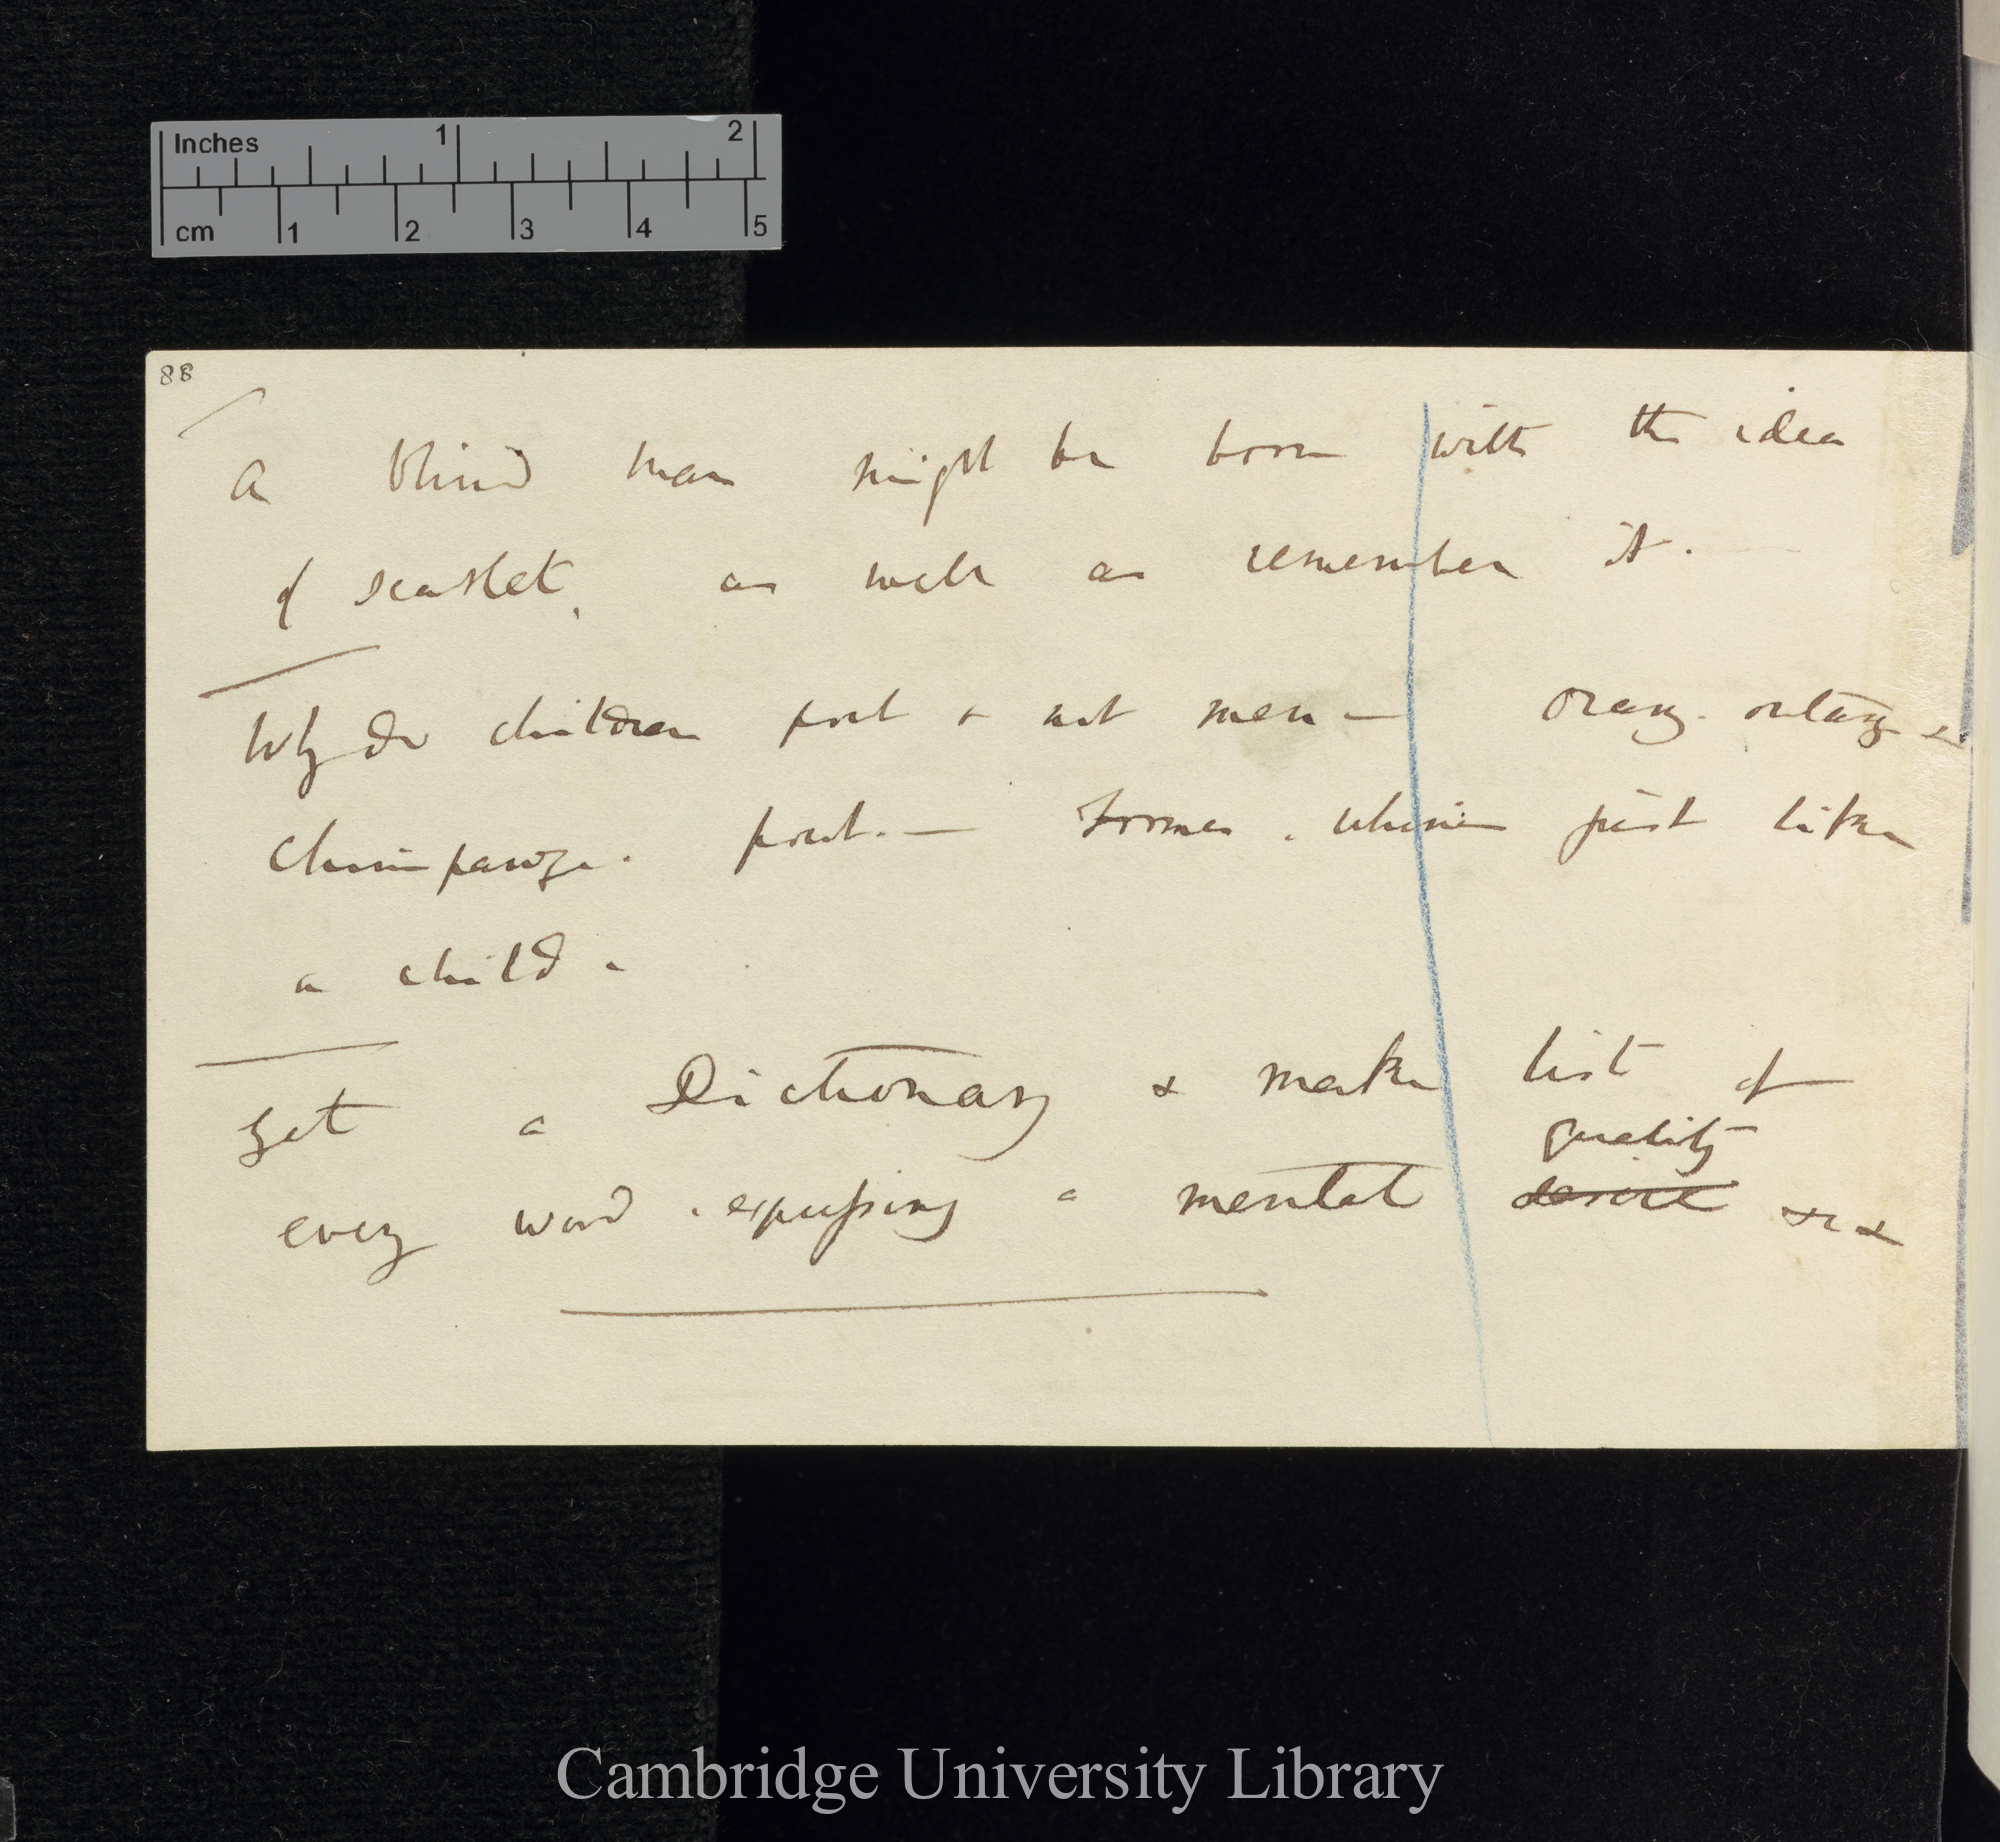 Inches 1 2
cm 1 2 3 4 5
88
A blind man might be born with the idea
of scarlet, as well as remember it.
Why do children pout & not men — Orang-outang &
chimpanze. pout. — Former. whine just like
a child.
Get a Dictionary & make list of
quality
every word. expressing a mental desire &c &
Cambridge University Library